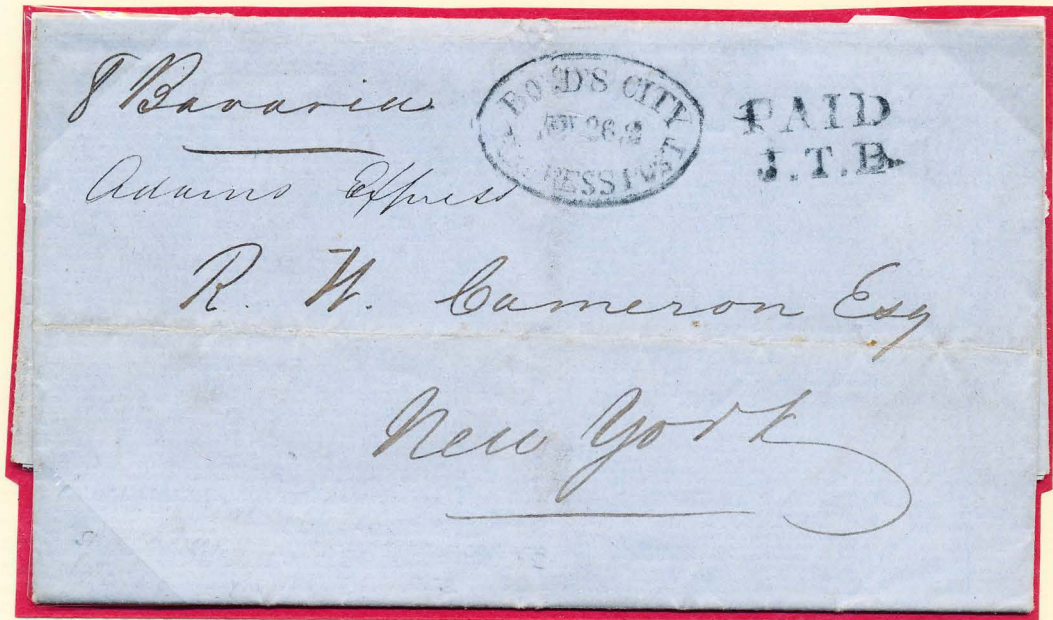 P Bavaria
Adams Express
BOYD'S CITY
NOV 26
EXPRESS POST
PAID
J.T.B.
R. W. Cameron Esq
New York